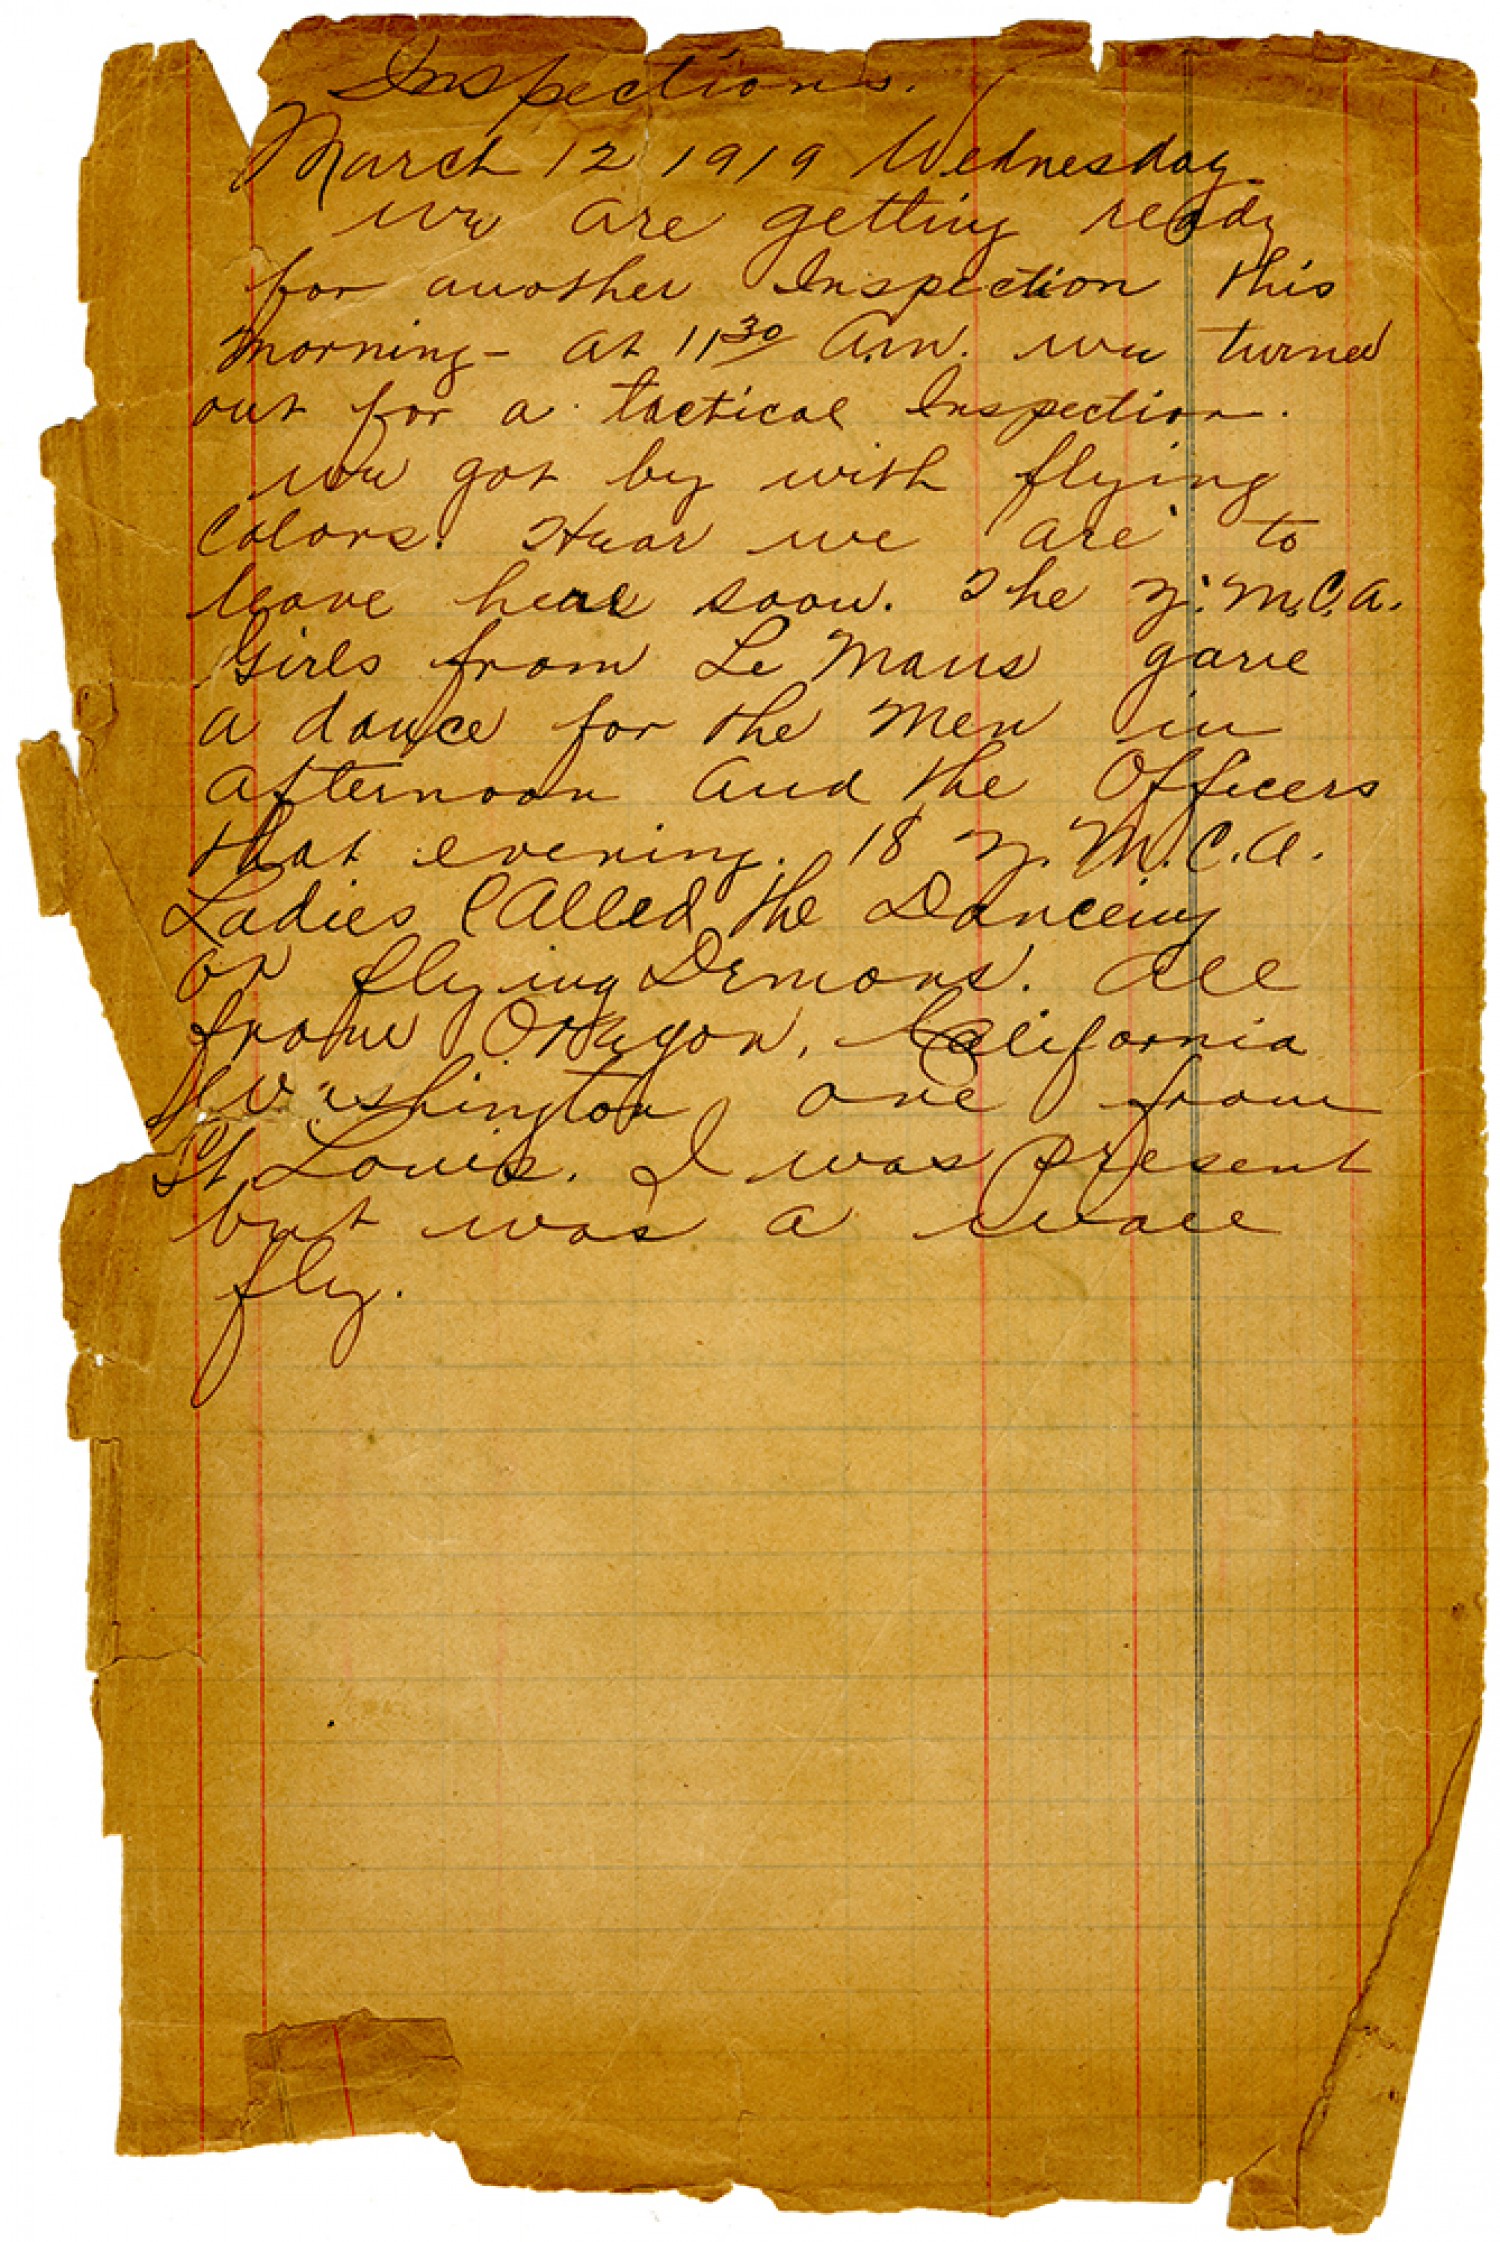 Inspections.
March 12 1919 Wednesday
we are getting ready
for another Inspection this
morning - at 11 30 A.m. we turned
out for a tactical Inspection.
we got by with flying
Colors. Hear we are to
leave here soon. The Y.M.C.A.
Girls from Le Mans gave
a dance for the men in
afternoon and the Officers
that evening. 18 Y.M.C.A.
Ladies Called the Danceing
or flying Demons. All
from Oragon, California
Washington, one from
St Louis. I was present
but was a wall
fly.